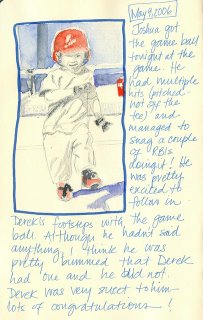 May 9, 2006
Joshua got
the game ball
tonight at the
game. He
had multiple
hits (pitched
not off the
tee) and
managed to
snag a couple
of RBIs
doing it! He
was pretty
excited to
follow in
Derek's footsteps with the game
ball. Although he hadn't said
anything, I think he was
pretty bummed that Derek
had one and he did not.
Derek was very sweet to him
lots of congratulations!